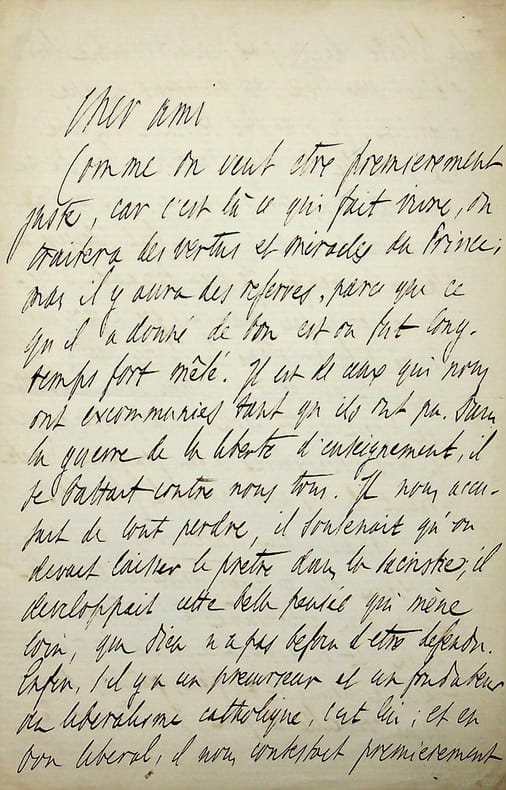 Cher ami
Comme on veut etre premierement
juste, car c'est là ce qui fait vivre, on
traitera des vertus et miracles du Prince;
mais il y aura des reserves, parce que ce
qu'il a donné de bon est ou fut long-
temps fort mêlé. Il est de ceux qui nous
ont excommuniés tant qu'ils ont pu. Dans
la guerre de la liberté d'enseignement, il
se battait contre nous tous. Il nous accu-
sait de tout perdre, il soutenait qu'on
devait laisser le pretre dans la sacristie; il
developpait cette belle pensée qui mène
loin, que Dieu n'a pas besoin d'etre defendu.
Enfin, s'il y a un precurseur et un fondateur
du liberalisme catholique, c'est lui; et en
bon liberal, il nous contestait premierement